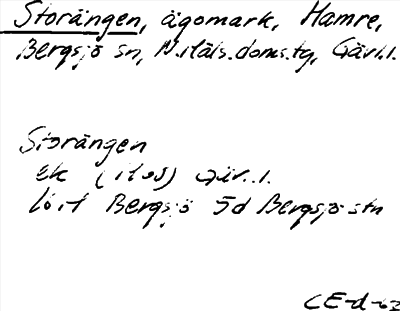 Storängen, ägomark, Hamre,
Bergsjö sn, N.Häls.doms.tg, Gävl.l.
Storängen
ek (
Bergsjö Sd Bergsjö stn
CE-d-62